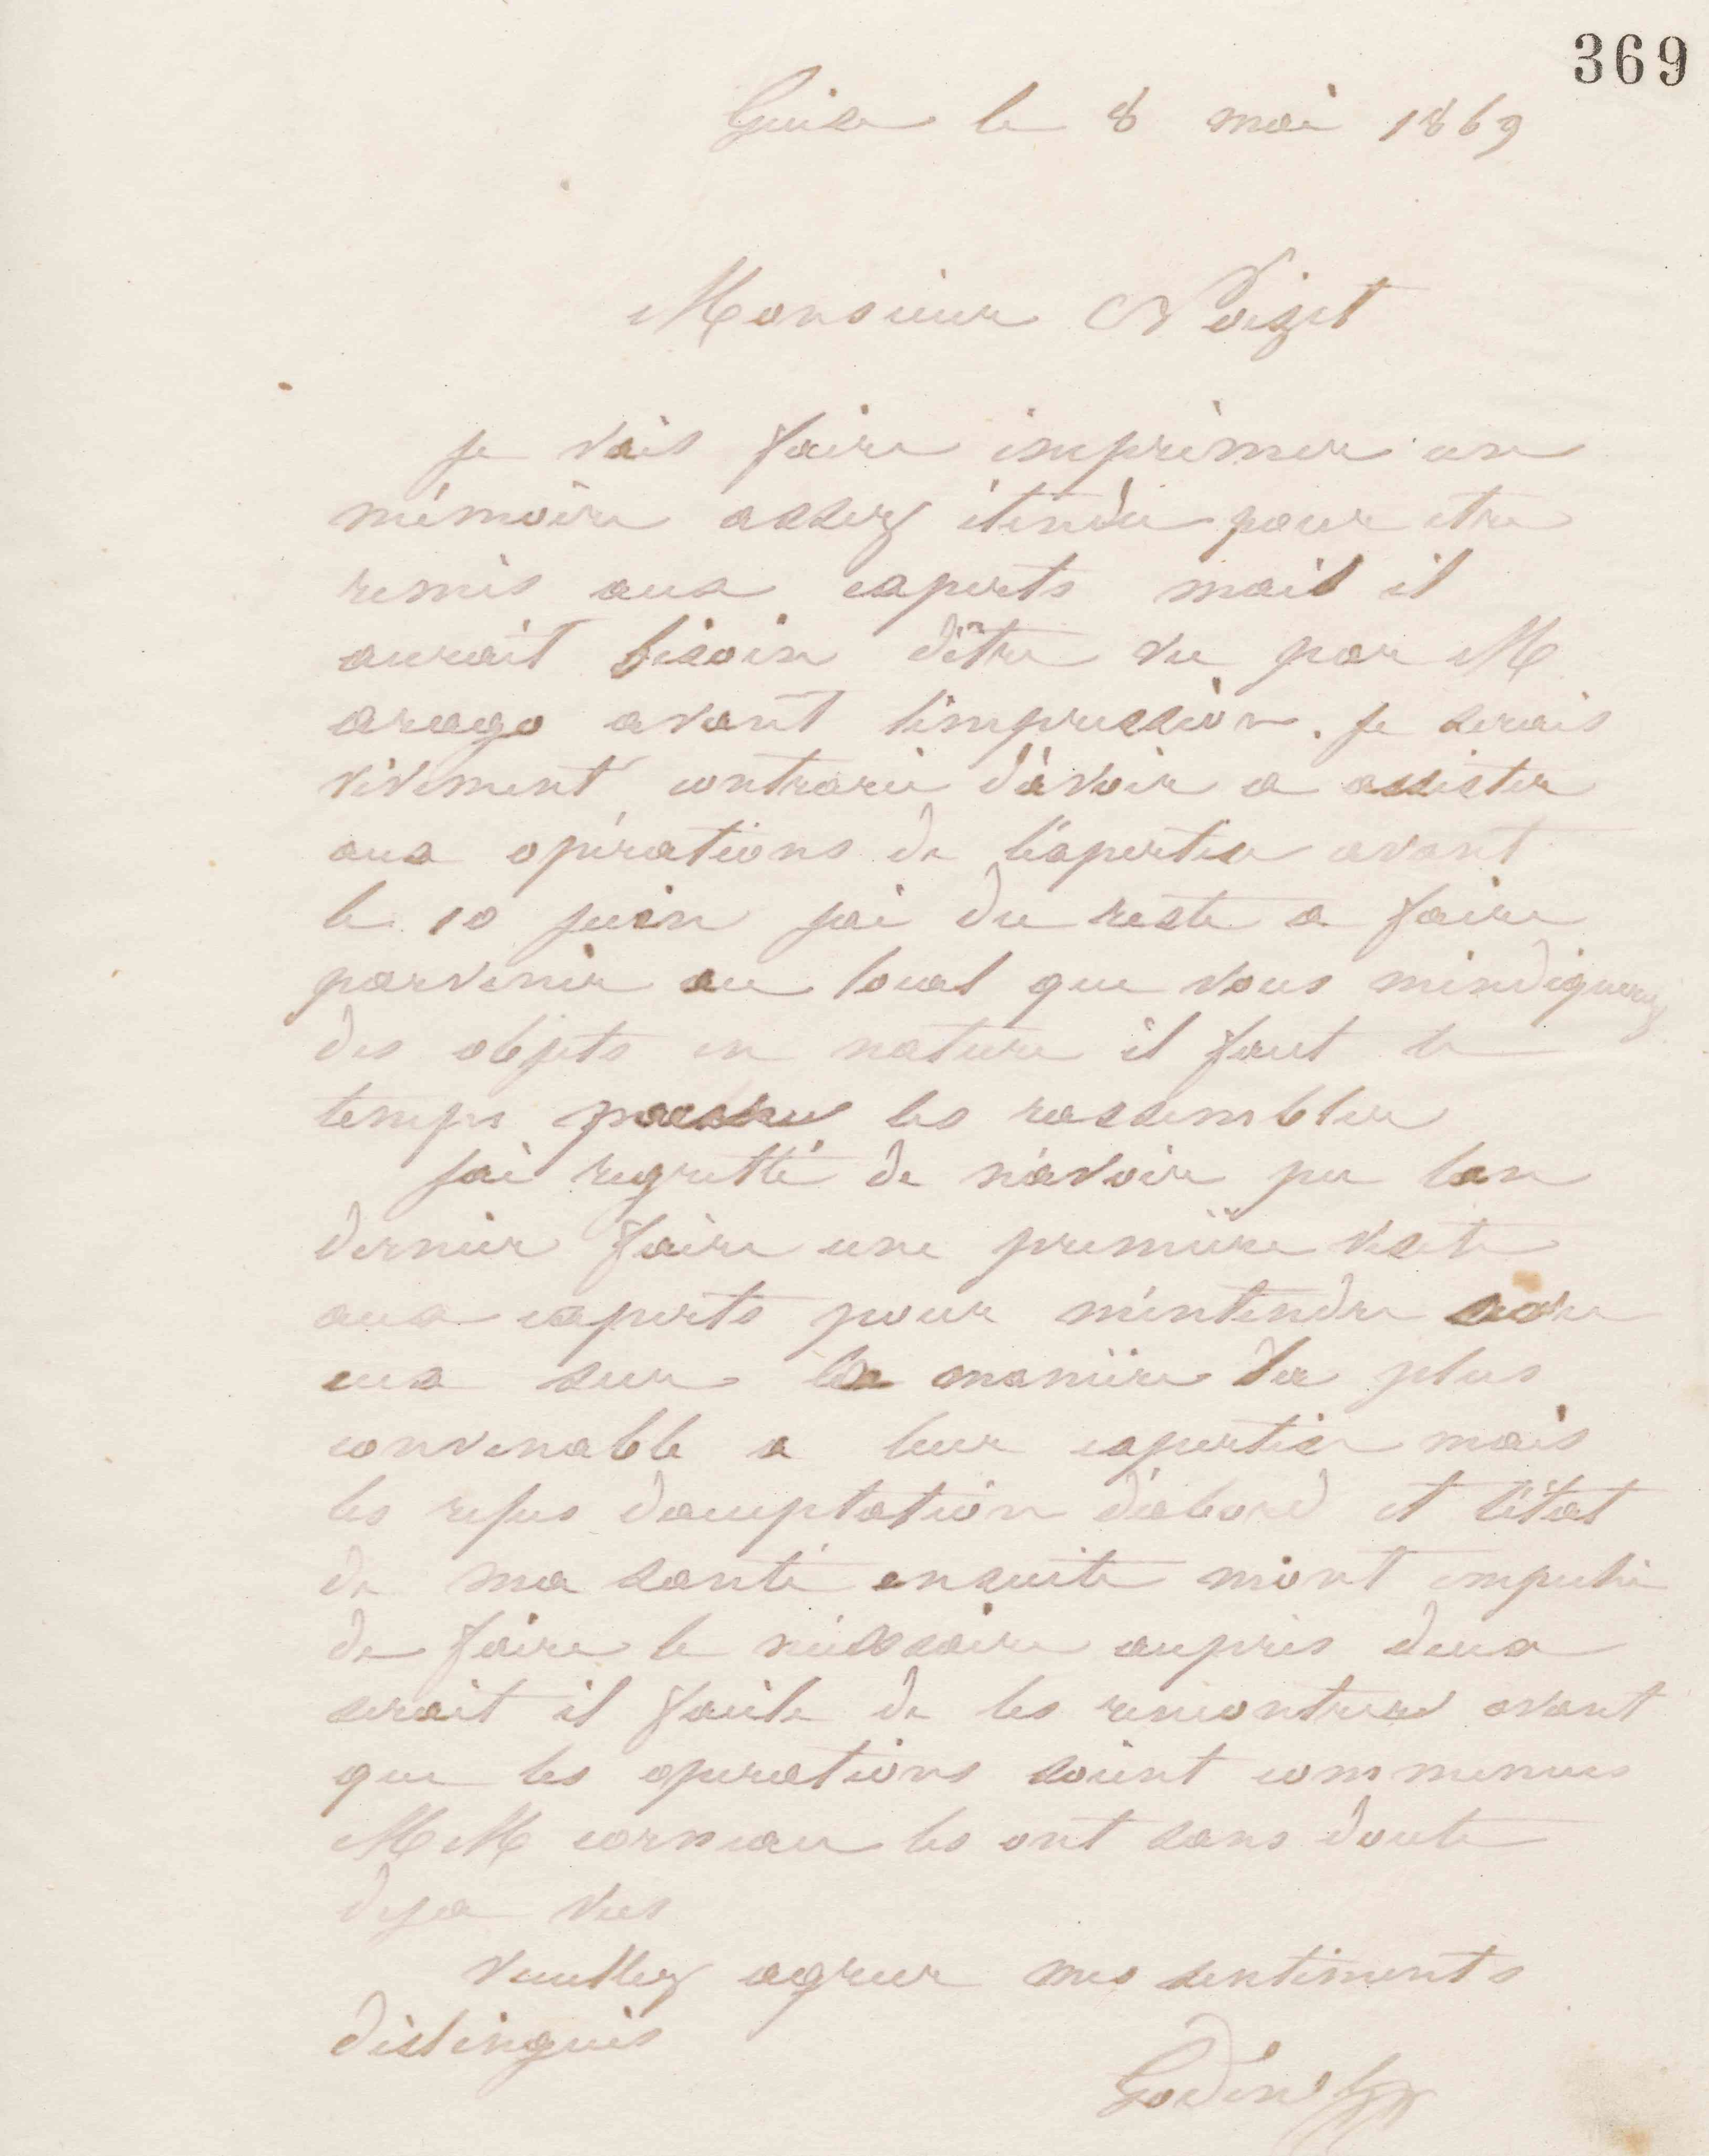 369
Guise le 8 mai 1869
Monsieur Noizet
Je vais faire imprimer un
mémoire assez étendu pour etre
remis aux experts mais il
aurait besoin d'être vu par M
arago avant l'impression. Je serais
vivement contrarié d'avoir a assister
aux opérations de l'expertise avant
le 10 juin j'ai du reste a faire
parvenir au local que vous m'indiquerez
des objets en nature il faut le
temps pour les rassembler
J'ai regretté de n'avoir pu l'an
dernier faire une première visite
aux experts pour m'entendre avec
eux sur la manière la plus
convenable a leur expertise mais
les refus d'acceptation d'abord et l'état
de ma santé ensuite m'ont empeché
de faire le nécessaire auprès d'eux
serait il facile de les rencontrer avant
que les operations soient commencées
MM corneau les ont sans doute
deja vus
veuillez agreer mes sentiments
distingués
Godin